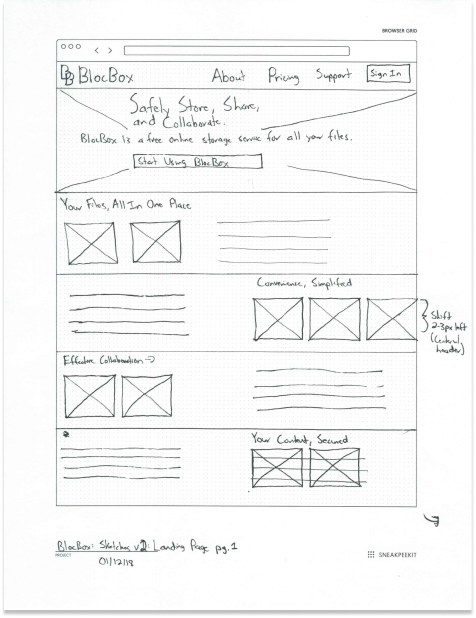 BROWSER GRID
BB BlocBox About Pricing Support Sign In
Safely Store, Share,
and Collaborate.
BlocBox is a free online storage service for all your files.
Start Using BlocBox
Your Files, All In One Place
Convenience, Simplified
Shift
2-3px left
(Central
header)
Effective Collaboration →
Your Content, Secured
BlocBox: Sketches v2: Landing Page pg. 1
PROJECT
01/12/18
SNEAKPEEKIT